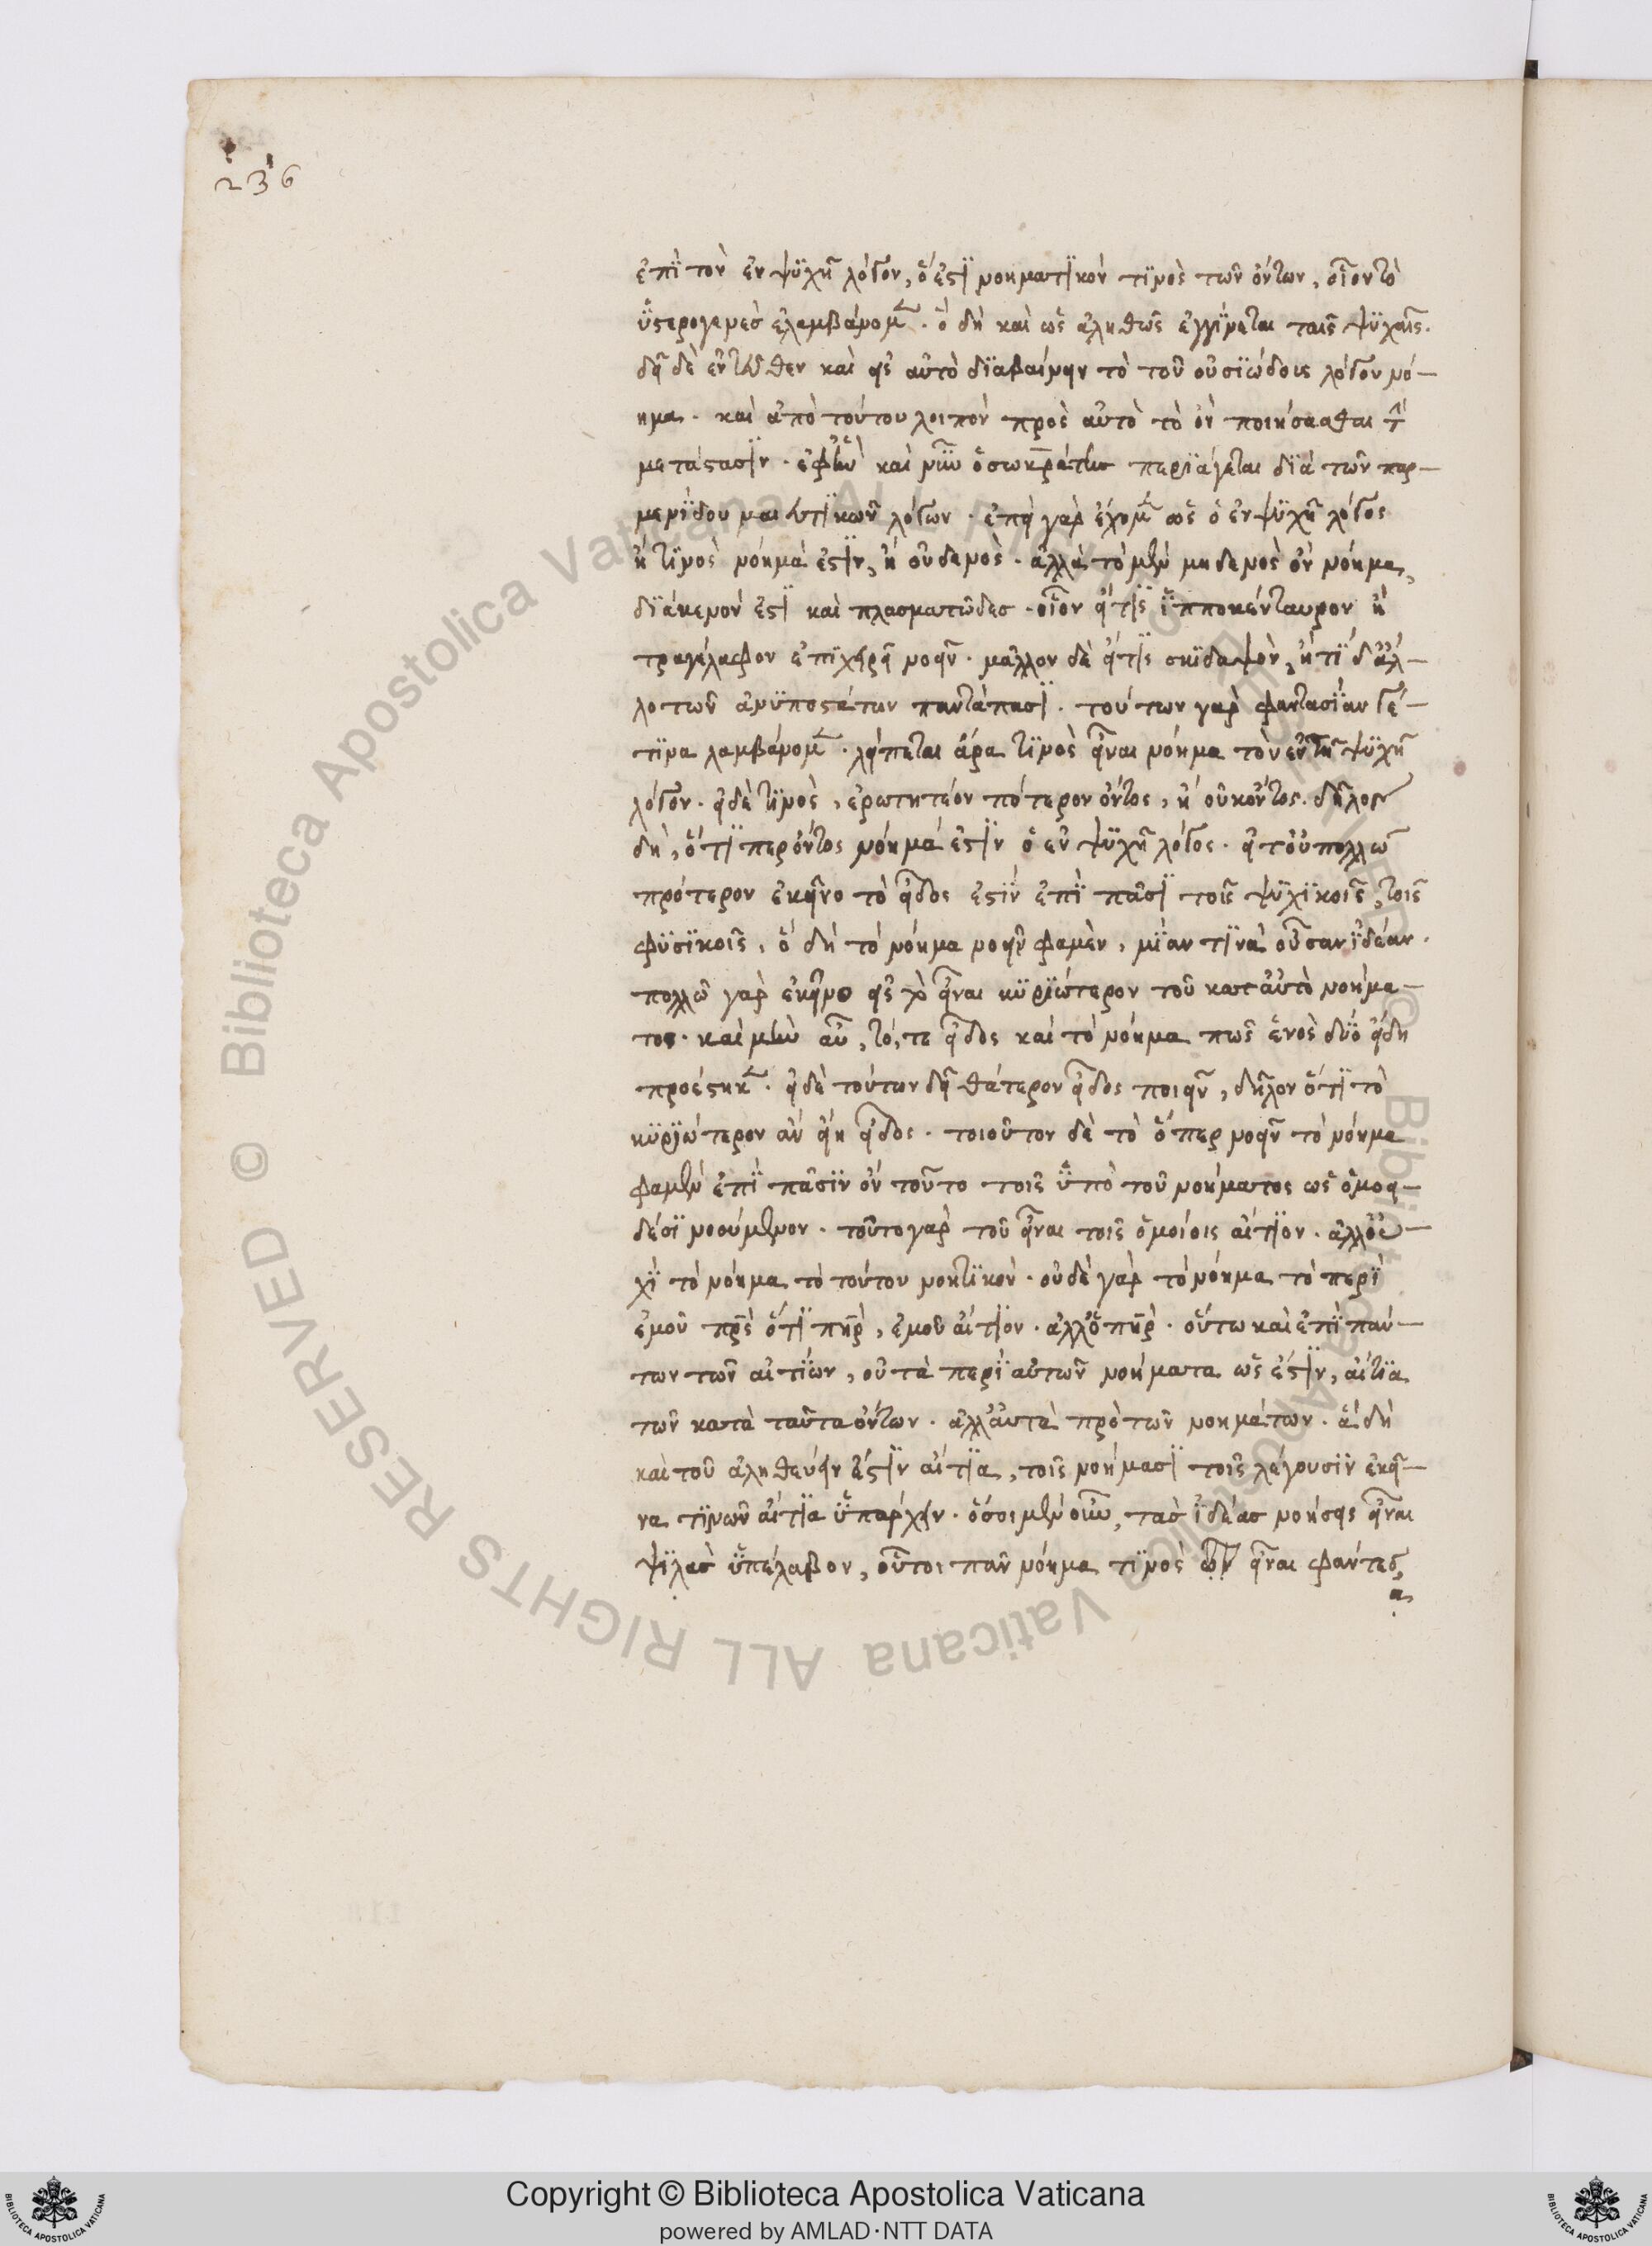 236
ἐπὶ τὸν ἐν ψυχῆ λόγον, ὅ ἐστι νοηματικόν τινὸς τῶν ὄντων, οἷον τὸ
ὑστερογενὲς ἐλαμβάνομεν. ὃ δὴ καὶ ὡς ἀληθῶς ἐγγίνεται ταῖς ψυχαῖς.
δεῖ δὲ ἐντεῦθεν καὶ εἰς αὐτὸ διαβαίνειν τὸ τοῦ οὐσιώδους λόγον νό-
ημα. καὶ ἀπὸ τούτου λοιπὸν πρὸς αὐτὸ τὸ ὂν ποιήσασθαι τὴν
μετάστασιν. ἐφ' ἣν καὶ νῦν ὁ σωκράτης περιάγεται διὰ τῶν παρ-
μενίδου μαιευτικῶν λόγων. ἐπεὶ γὰρ ἔχομεν ὡς ὁ ἐν ψυχῆ λόγος
ἢ τινὸς νόημά ἐστιν, ἢ οὐδενὸς. ἀλλὰ τὸ μὲν μηδενὸς ὂν νόημα,
διάκενόν ἐστι καὶ πλασματῶδες. οἷον εἴ τις ἱπποκένταυρον ἢ
τραγέλαφον ἐπιχειρεῖ νοεῖν. μᾶλλον δὲ εἴ τις σκιδαψὸν, ἤ τι δ' ἄλ-
λο τῶν ἀνυποστάτων παντάπασι. τούτων γὰρ φαντασίαν γέ
τινα λαμβάνομεν. λείπεται ἄρα τινὸς εἶναι νόημα τὸν ἐν τῆ ψυχῆ
λόγον. εἰ δὲ τινὸς, ἐρωτητέον πότερον ὄντος, ἢ οὐκ ὄντος. δῆλον
δὴ, ὅτι περ ὄντος νόημά ἐστιν ὁ ἐν ψυχῆ λόγος. εἶτ' οὐ πολλῶ
πρότερον ἐκεῖνο τὸ εἶδος ἐστὶν ἐπὶ πᾶσι τοῖς ψυχικοῖς, τοῖς
φυσικοῖς, ὃ δὴ τὸ νόημα νοεῖν φαμὲν, μίαν τινὰ οὖσαν ἰδέαν.
πολλῶ γὰρ ἐκεῖνο εἰς τὸ εἶναι κυριώτερον τοῦ κατ' αὐτὸ νοήμα-
τος. καὶ μὴν αὖ, τό, τε εἶδος καὶ τὸ νόημα πως ἑνὸς δύο εἴδη
προέστηκεν. εἰ δὲ τούτων δεῖ θάτερον εἶδος ποιεῖν, δῆλον ὅτι τὸ
κυριώτερον ἂν εἴη εἶδος. τοιοῦτον δὲ τὸ ὅπερ νοεῖν τὸ νόημα
φαμὲν ἐπὶ πᾶσιν ὂν τοῦτο τοῖς ὑπὸ τοῦ νοήματος ὡς ὁμοει-
δέσι νοούμενον. τοῦτο γὰρ τοῦ εἶναι τοῖς ὁμοίοις αἴτιον. ἀλλ' οὐ-
χὶ τὸ νόημα τὸ τούτου νοητικὸν. οὐδὲ γὰρ τὸ νόημα τὸ περὶ
ἐμοῦ πρς ὅτι πηρ, ἐμοῦ αἴτιον. ἀλλ' ὁ πηρ. οὕτω καὶ ἐπὶ πάν-
των τῶν αἰτίων, οὐ τὰ περὶ αὐτῶν νοήματα ὡς ἐστιν, αἴτια
τῶν κατὰ ταῦτα ὄντων. ἀλλ' αὐτὰ πρὸ τῶν νοημάτων. ἃ δὴ
καὶ τοῦ ἀληθεύειν ἐστὶν αἴτια, τοῖς νοήμασι τοῖς λέγουσιν ἐκεῖ-
να τινῶν αἴτια ὑπάρχειν. ὅσοι μὲν οὖν, τὰς ἰδέας νοήσεις εἶναι
ψιλὰς ὑπέλαβον, οὗτοι πᾶν νόημα τινὸς εἶναι φάντες,